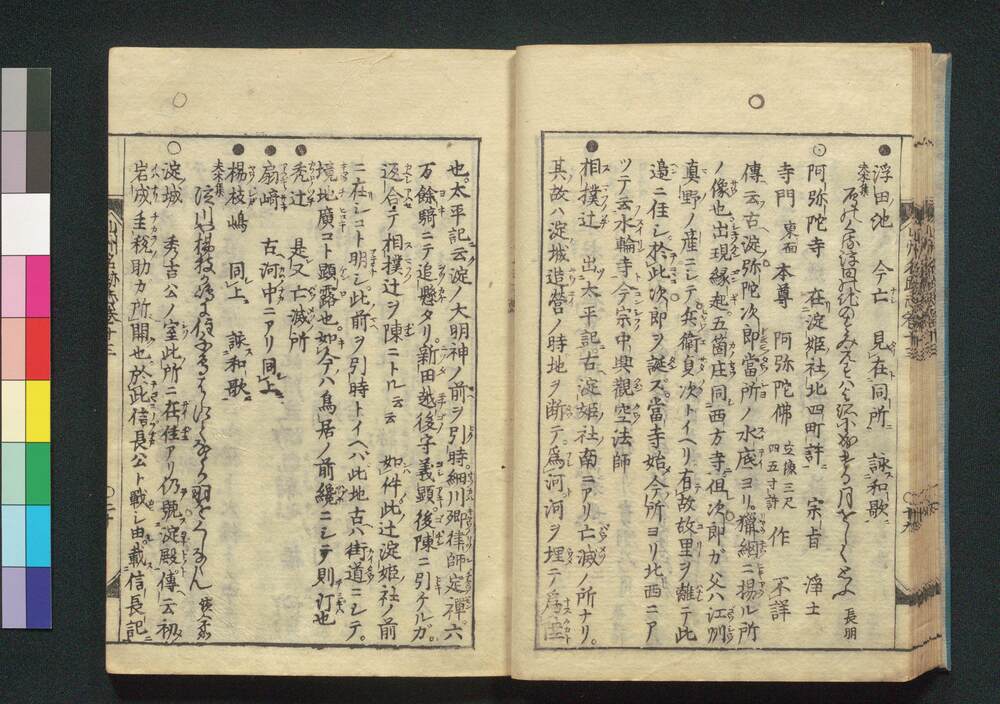 浮田池 今亡 見在同所ニ 詠和歌
夫木集
長明
阿弥陀寺 在淀姫社北四町許 宗旨 浄土
寺門 東面 本尊 阿弥陀佛 立像三尺四五寸許 作 不詳
傳云古淀弥陀次郎當所ノ水底ヨリ猟網ニ揚ル所
ノ像也出現縁起五箇庄同西方寺但次郎ガ父ハ江州
真野ノ産ニシテ兵衛貞次トイヘリ有故故里ヲ離テ此
邉ニ住シ於此次郎ヲ誕ス當寺始今所ヨリ北西ニア
ツテ云水輪寺今宗中興觀空法師
相撲辻 出太平記古淀姫社南ニアリ亡滅ノ所ナリ
其故ハ淀城造営ノ時地ヲ断テ為河河ヲ埋テ為
也太平記云淀ノ大明神ノ前ヲ引時細川卿律師定禅六
万餘騎ニテ追懸タリ新田越後守義顕後陳ニ引ケルガ
返合テ相撲辻ヲ陳ニトル云云 如件此辻淀姫社ノ前
ニ在シコト明シ此前ヲ引時トイヘバ此地古ハ街道ニシテ
境地廣コト顕露也如今ハ鳥居ノ前纔ニシテ則汀也
禿辻 是又亡滅所
扇﨑 古河中ニアリ同上
楊枝嶋 同上 詠和歌
夫木集
淀城 秀吉公ノ室此所ニ在住アリ仍號淀殿傳云初
岩成主税助カ所開也於此信長公ト戦シ由載信長記